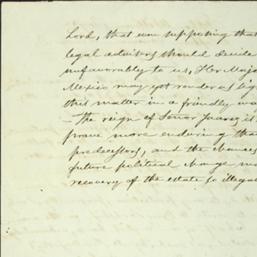 Lord, that even supposing that
legal advisers should decide
unfavorably to us, Her Maj
Mexico may yet render us
this matter in a friendly wa
- The reign of Señor Juarez is
prove more enduring tha
predecessors, and the chances
future political change ma
recovery of the estate so illega